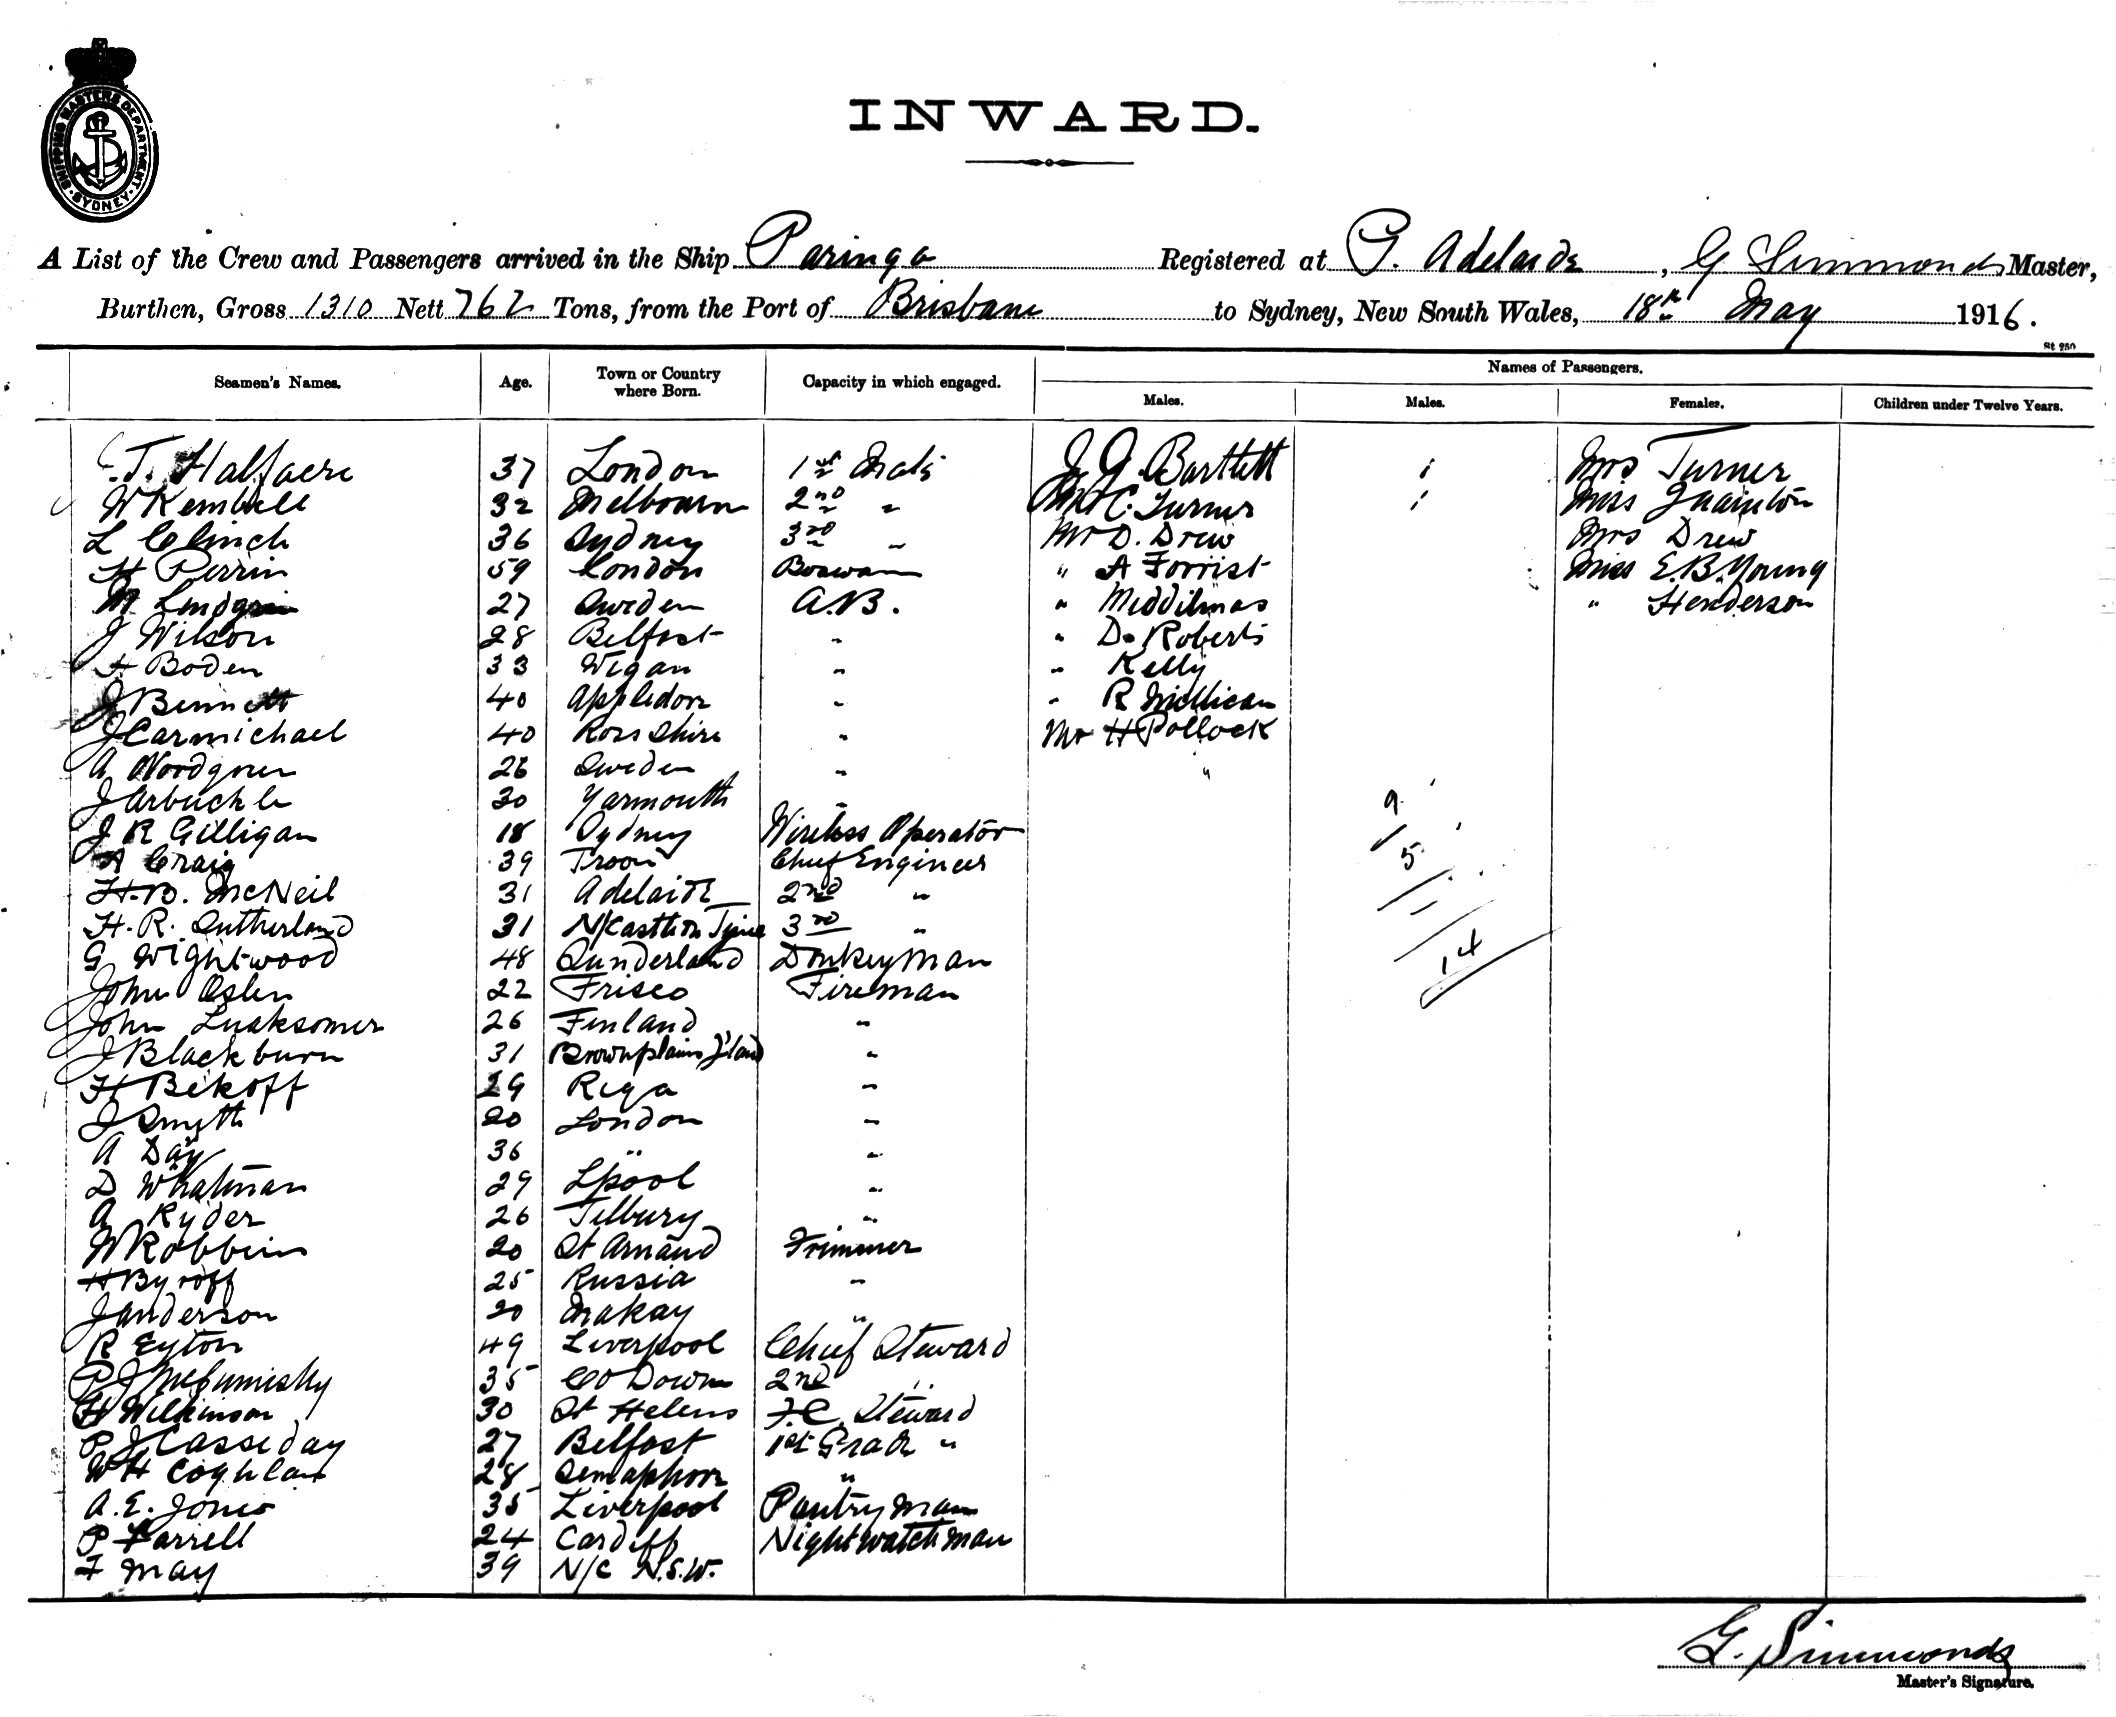 SHIPPING MASTERS DEPARTMENT · SYDNEY ·
INWARD.
A List of the Crew and Passengers arrived in the Ship Paringa Registered at P. Adelaide, G Simmonds Master,
Burthen, Gross 1310 Nett 762 Tons, from the Port of Brisbane to Sydney, New South Wales, 18th May 1916.
St 250
Seamen's Names. Age. Town or Country where Born. Capacity in which engaged. Names of Passengers.
Males. Males. Females. Children under Twelve Years.
T. Halfacre 37 London 1st Mate J. G. Bartlett Mrs Turner
W Kembell 32 Melbourn 2nd " C. Turner Miss
L Clinch 36 Sydney 3rd " Mr D. Drew Mrs Drew
H Perrin 59 London Boswain " A Forrist Miss E. B. Young
M 27 Sweden A.B. " Middilmas " Henderson
J Wilson 28 Belfast " " D. Roberts
H Boden 33 Wigan " " Kelly
J Bennett 40 Appledore " " R Millican
J Carmichael 40 Ross Shire " Mr H Pollock
A Nordgren 26 Sweden " "
J Arbuckle 30 Yarmouth " 9
J R Gilligan 18 Sydney Wireless Operator
A Craig 39 Troon Chief Engineer 5
H. B. McNeil 31 Adelaide 2nd "
H. R. Sutherland 31 N/Castle on Tyne 3rd "
G Wightwood 48 Sunderland Donkeyman 14
John Oslen 22 Frisco Fireman
John Luaksomer 26 Finland "
J Blackburn 31 "
H Bekoff 29 Riga "
J Smyth 20 London "
A Day 36 " "
D Whatman 29 Lpool "
A Ryder 26 Tilbury "
W Robbins 20 St Arnaud Trimmer
H Byroff 25 Russia "
J Anderson 20 Makay "
R Eyton 49 Liverpool Chief Steward
P J 35 Co Down 2nd "
H Wilkinson 30 St Helens F.C. Steward
P J Casseday 27 Belfast 1st Grade "
W H Coghlan 28 Semaphore "
A. E. Jones 35 Liverpool Pantryman
P Farrell 24 Cardiff Nightwatchman
F May 39 N/C N.S.W.
G. Simmonds
Master's Signature.